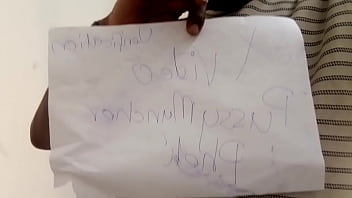 Verification
Video
PussyMuncher